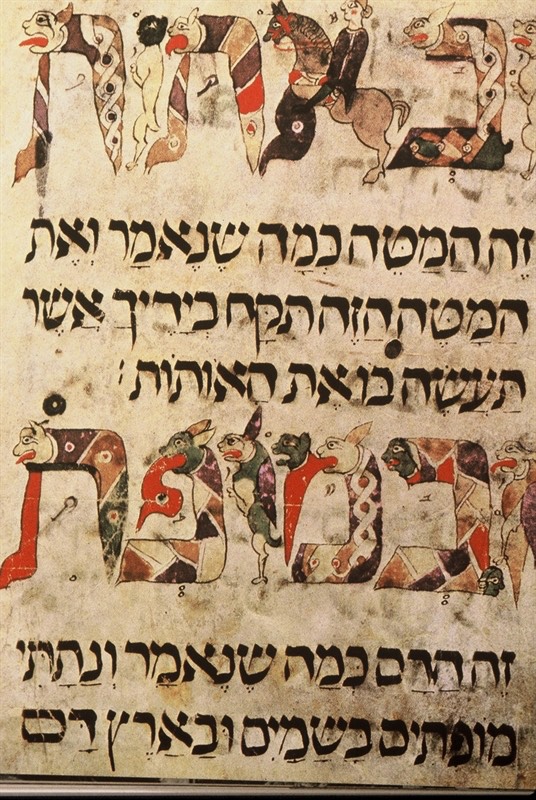 ובאתות
זה המטה כמה שנאמר ואת
המטה הזה תקח בידיך אשר
תעשה בו את האותות׃
ובמופת
זה הדם כמה שנאמר ונתתי
מופתים בשמים ובארץ דם